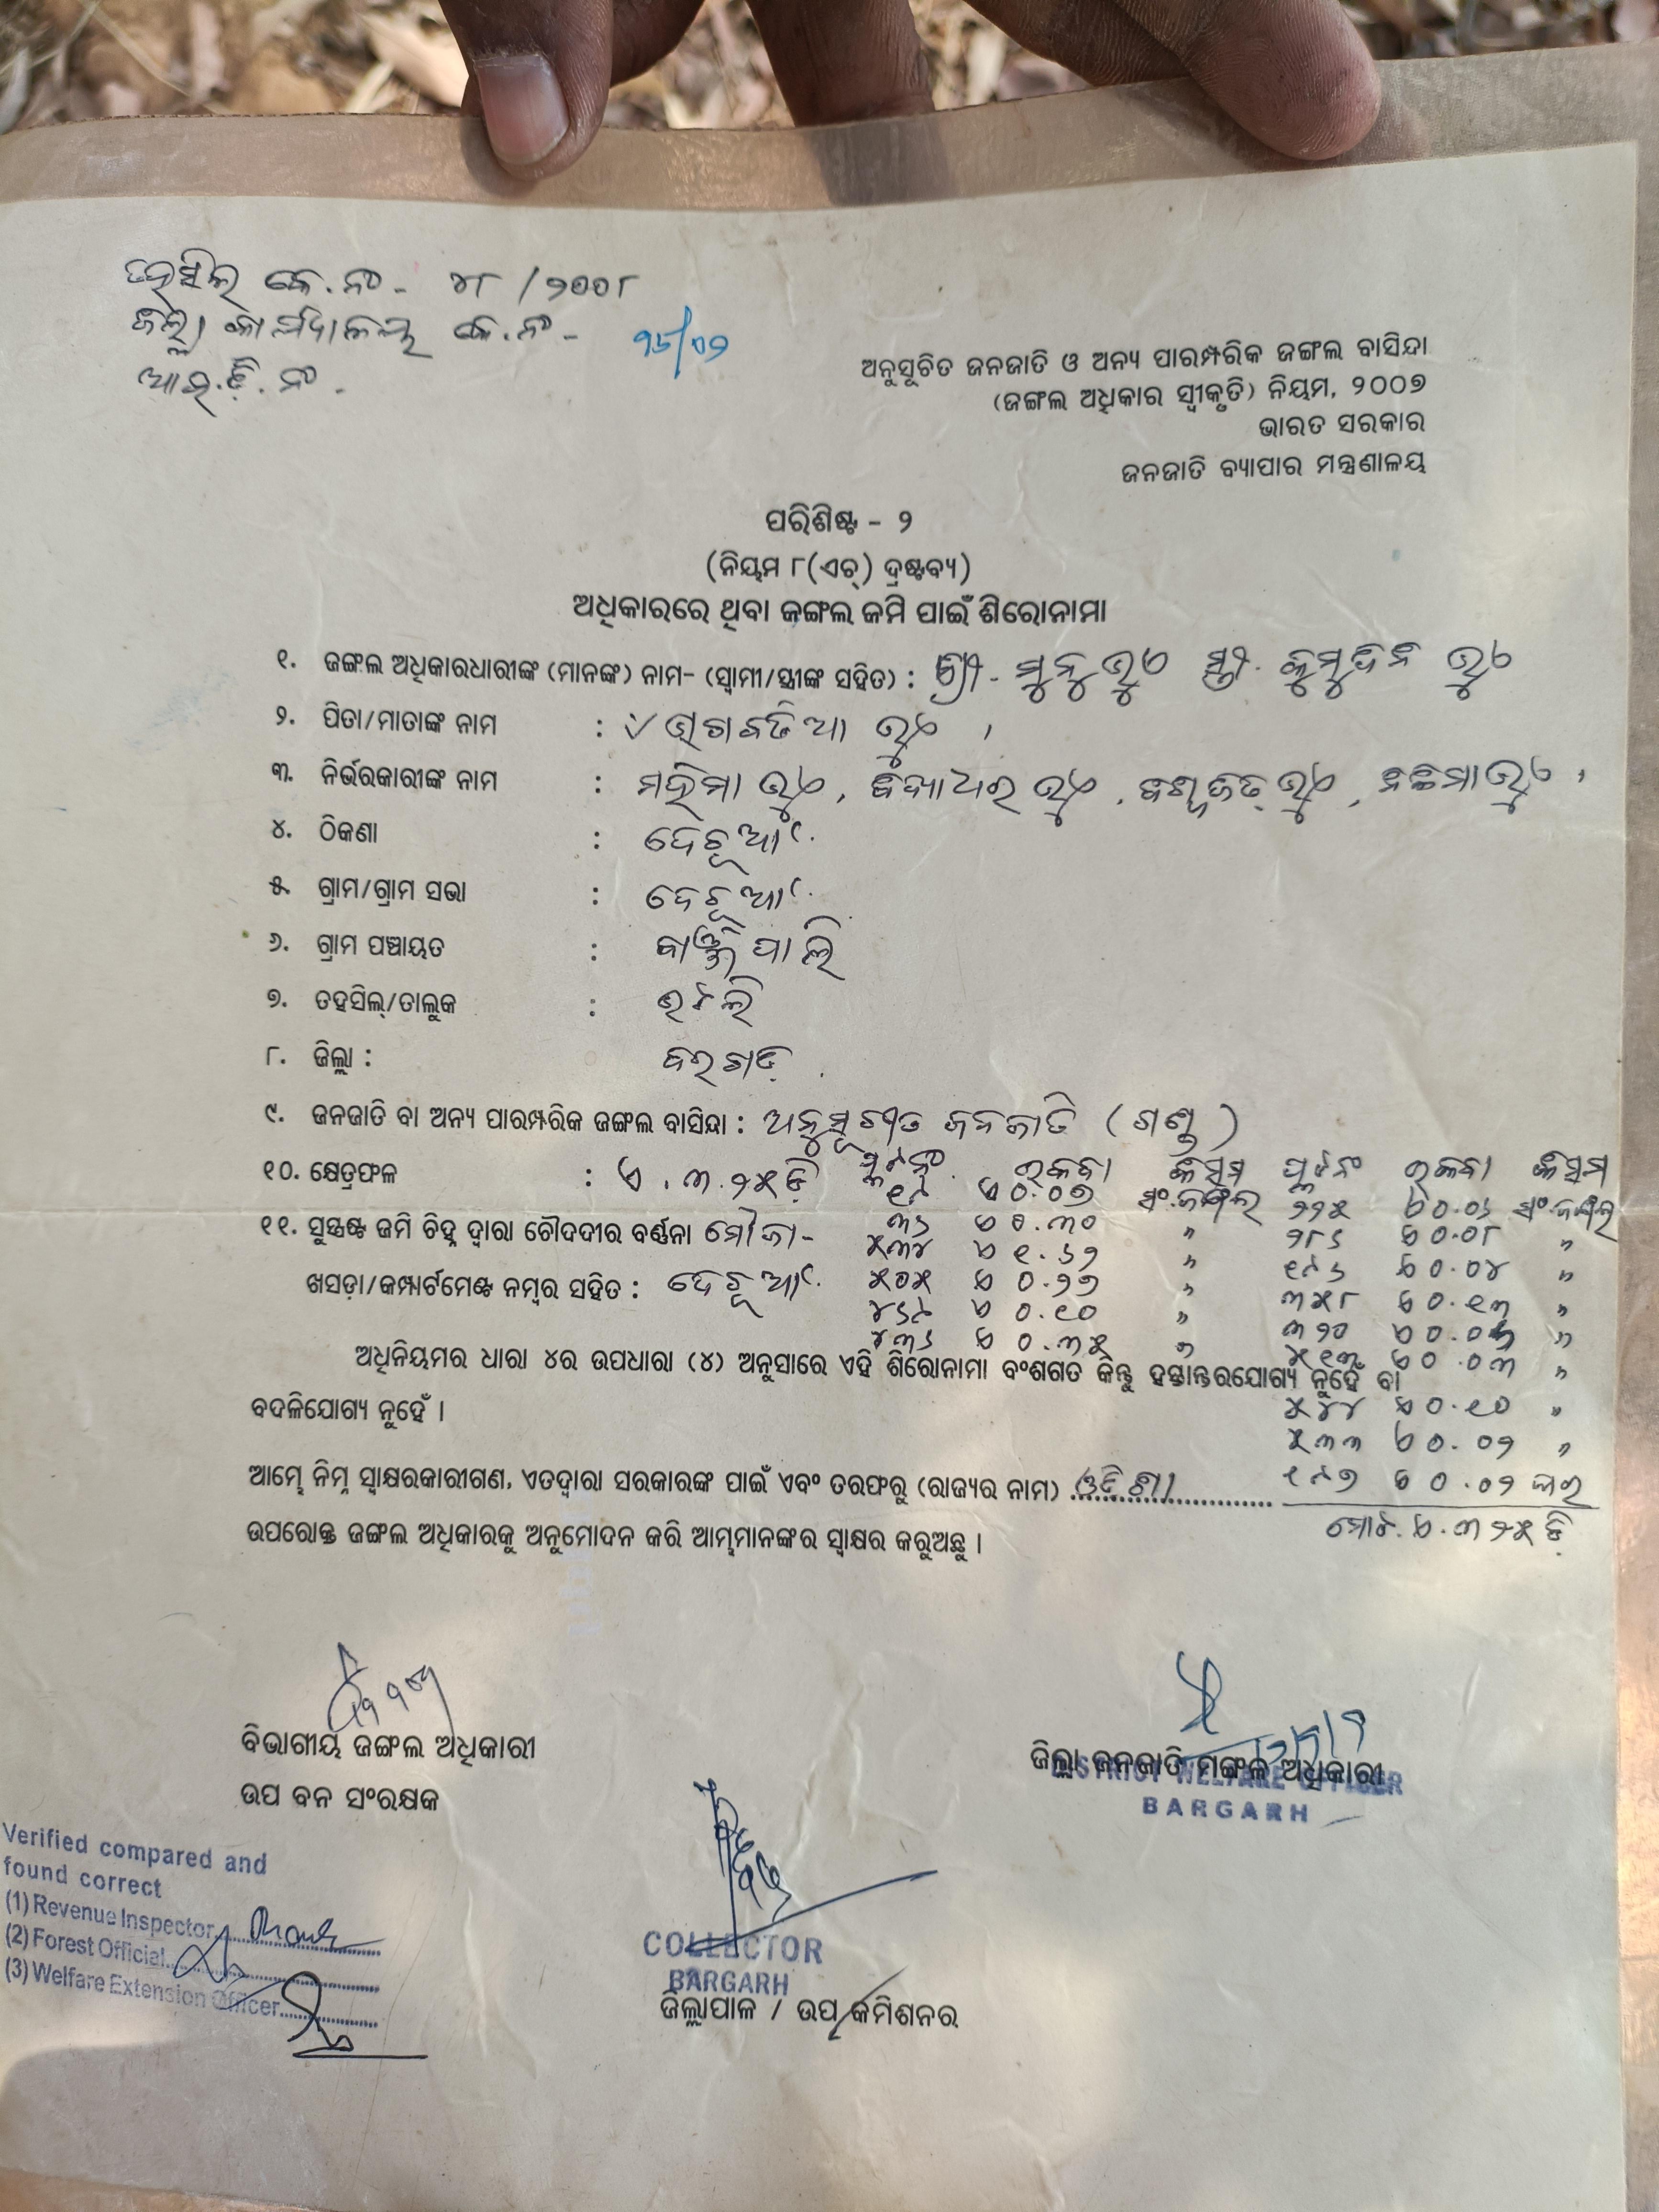 ତହସିଲ କେ.ନଂ - ୪୮ /୨୦୦୮
ଜିଲ୍ଲା କାର୍ଯ୍ୟାଳୟ କେ.ନଂ -
ଆଇ.ଡ଼ି. ନଂ .
ଅନୁସୂଚିତ ଜନଜାତି ଓ ଅନ୍ୟ ପାରମ୍ପରିକ ଜଙ୍ଗଲ ବାସିନ୍ଦା
(ଜଙ୍ଗଲ ଅଧିକାର ସ୍ୱୀକୃତି) ନିୟମ, ୨୦୦୭
ଭାରତ ସରକାର
ଜନଜାତି ବ୍ୟାପାର ମନ୍ତ୍ରଣାଳୟ
ପରିଶିଷ୍ଟ - ୨
(ନିୟମ ୮(ଏଚ୍) ଦ୍ରଷ୍ଟବ୍ୟ)
ଅଧିକାରରେ ଥିବା ଜଙ୍ଗଲ ଜମି ପାଇଁ ଶିରୋନାମା
୧. ଜଙ୍ଗଲ ଅଧିକାରଧାରୀଙ୍କ (ମାନଙ୍କ) ନାମ- (ସ୍ୱାମୀ/ସ୍ତ୍ରୀଙ୍କ ସହିତ) : ଶ୍ରୀ- ମୁନୁ ଭୁଏ ସ୍ତ୍ରୀ. କୁମୁଦିନ ଭୁଏ
୨. ପିତା/ମାତାଙ୍କ ନାମ : ଭାଗବତିଆ ଭୁଏ ,
୩. ନିର୍ଭରକାରୀଙ୍କ ନାମ : ମହିମା ଭୁଏ , ବିଦ୍ୟାଧର ଭୁଏ , ଭୁଏ , ଭୁଏ ,
୪. ଠିକଣା : ଦେଚୂଆଁ.
୫. ଗ୍ରାମ/ଗ୍ରାମ ସଭା : ଦେଚୂଆଁ.
୬. ଗ୍ରାମ ପଞ୍ଚାୟତ :
୭. ତହସିଲ୍/ତାଲୁକ : ଭଟଲି
୮. ଜିଲ୍ଲା : ବରଗଡ଼ .
୯. ଜନଜାତି ବା ଅନ୍ୟ ପାରମ୍ପରିକ ଜଙ୍ଗଲ ବାସିନ୍ଦା : ଅନୁସୂଚୀତ ଜନଜାତି (ଗଣ୍ଡ)
୧୦. କ୍ଷେତ୍ରଫଳ : ଏ . ୩.୨୫ ଡ଼ି ପ୍ଲଟନଂ ରକବା କିସମ ପ୍ଲଟନଂ ରକବା କିସମ
୧୯ ଏ ୦.୦୭ ସଂ.ଜଙ୍ଗଲ ୨୨୫ ଏ ୦.୦୬ ସଂ.ଜଙ୍ଗଲ
୧୧. ସୁସ୍ପଷ୍ଟ ଜମି ଚିହ୍ନ ଦ୍ୱାରା ଚୌଦଦୀର ବର୍ଣ୍ଣନା ମୌଜା- ୩୬ ଏ ୦.୩୦ " ୨୮୬ ଏ ୦.୦୮ "
୫୩୪ ଏ ୧.୬୨ " ୧୯୬ ଏ ୦.୦୪ "
ଖସଡ଼ା/କମ୍ପାର୍ଟମେଣ୍ଟ ନମ୍ବର ସହିତ : ଦେଚୂଆଁ. ୫୦୫ ଏ ୦.୨୭ " ୩୫୮ ଏ ୦.୧୩ "
୪୬୯ ଏ ୦.୧୦ " ୩୨୦ ଏ "
୪୩୬ ଏ ୦.୩୫ " ୫୧୩ ଏ ୦.୦୩ "
ଅଧିନିୟମର ଧାରା ୪ର ଉପଧାରା (୪) ଅନୁସାରେ ଏହି ଶିରୋନାମା ବଂଶଗତ କିନ୍ତୁ ହସ୍ତାନ୍ତରଯୋଗ୍ୟ ନୁହେଁ ବା
ବଦଳିଯୋଗ୍ୟ ନୁହେଁ । ୫୪୪ ଏ ୦.୧୦ "
୫୩୩ ଏ ୦.୦୨ "
ଆମ୍ଭେ ନିମ୍ନ ସ୍ୱାକ୍ଷରକାରୀଗଣ, ଏତଦ୍ୱାରା ସରକାରଙ୍କ ପାଇଁ ଏବଂ ତରଫରୁ (ରାଜ୍ୟର ନାମ) ଓଡ଼ିଶା ୧୯୭ ଏ ୦.୦୨
ଉପରୋକ୍ତ ଜଙ୍ଗଲ ଅଧିକାରକୁ ଅନୁମୋଦନ କରି ଆମ୍ଭମାନଙ୍କର ସ୍ୱାକ୍ଷର କରୁଅଛୁ । ମୋଟ. ଏ.୩.୨୫ ଡ଼ି
ବିଭାଗୀୟ ଜଙ୍ଗଲ ଅଧିକାରୀ
ଉପ ବନ ସଂରକ୍ଷକ
ଜିଲ୍ଲା ଜନଜାତି ମଙ୍ଗଳ ଅଧିକାରୀ
DISTRICT WELFARE OFFICER
BARGARH
Verified compared and
found correct
(1) Revenue Inspector
(2) Forest Official
(3) Welfare Extension Officer
COLLECTOR
BARGARH
ଜିଲ୍ଲାପାଳ / ଉପ କମିଶନର